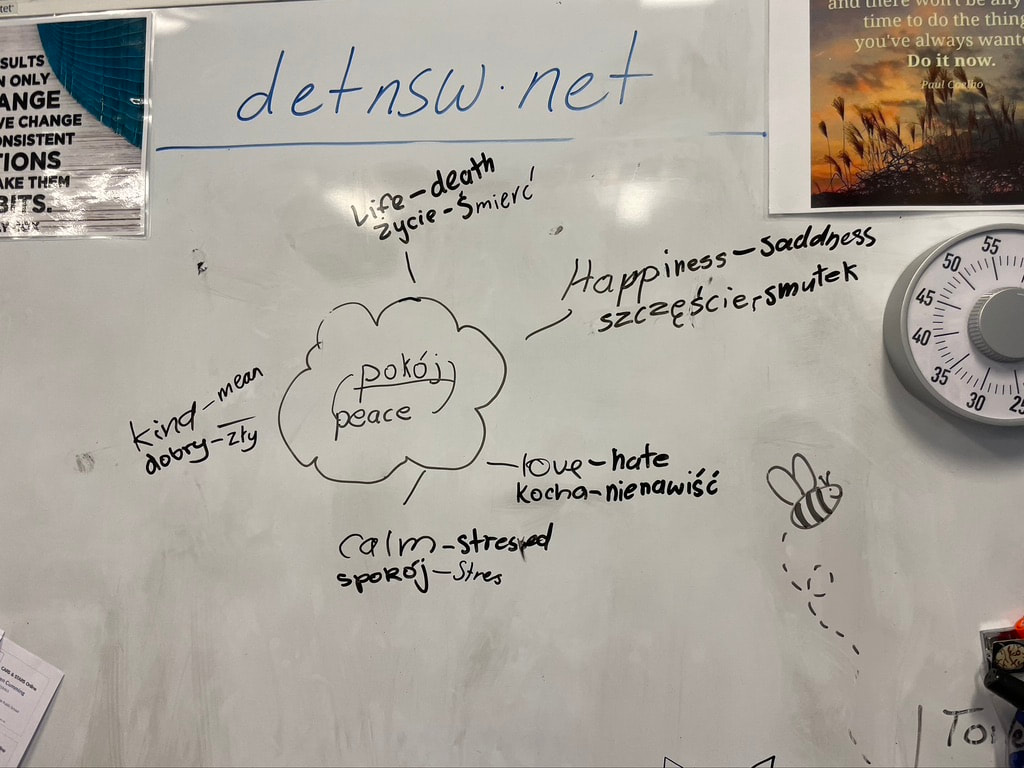 SULTS
N ONLY
ANGE
VE CHANGE
ONSISTENT
TIONS
AKE THEM
BITS.
detnsw.net
and there won't be any
time to do the thing
you've always wante
Do it now.
Paul Coelho
Life-death
życie-śmierć
Happiness-saddness
szczęście, smutek
55
50
45
40
35
30
25
pokój
peace
kind-mean
dobry-zły
love-hate
kocha-nienawiść
calm-stresed
spokój-stres
CARE & STARS Online
Cumming